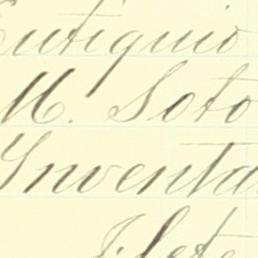 Eutiquio
M. Soto
Inventa